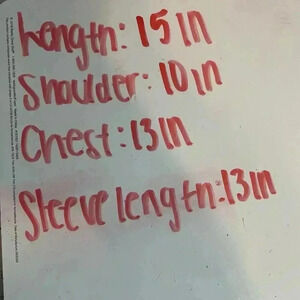 Length: 15in
Shoulder: 10in
Chest: 13in
Sleeve length: 13in